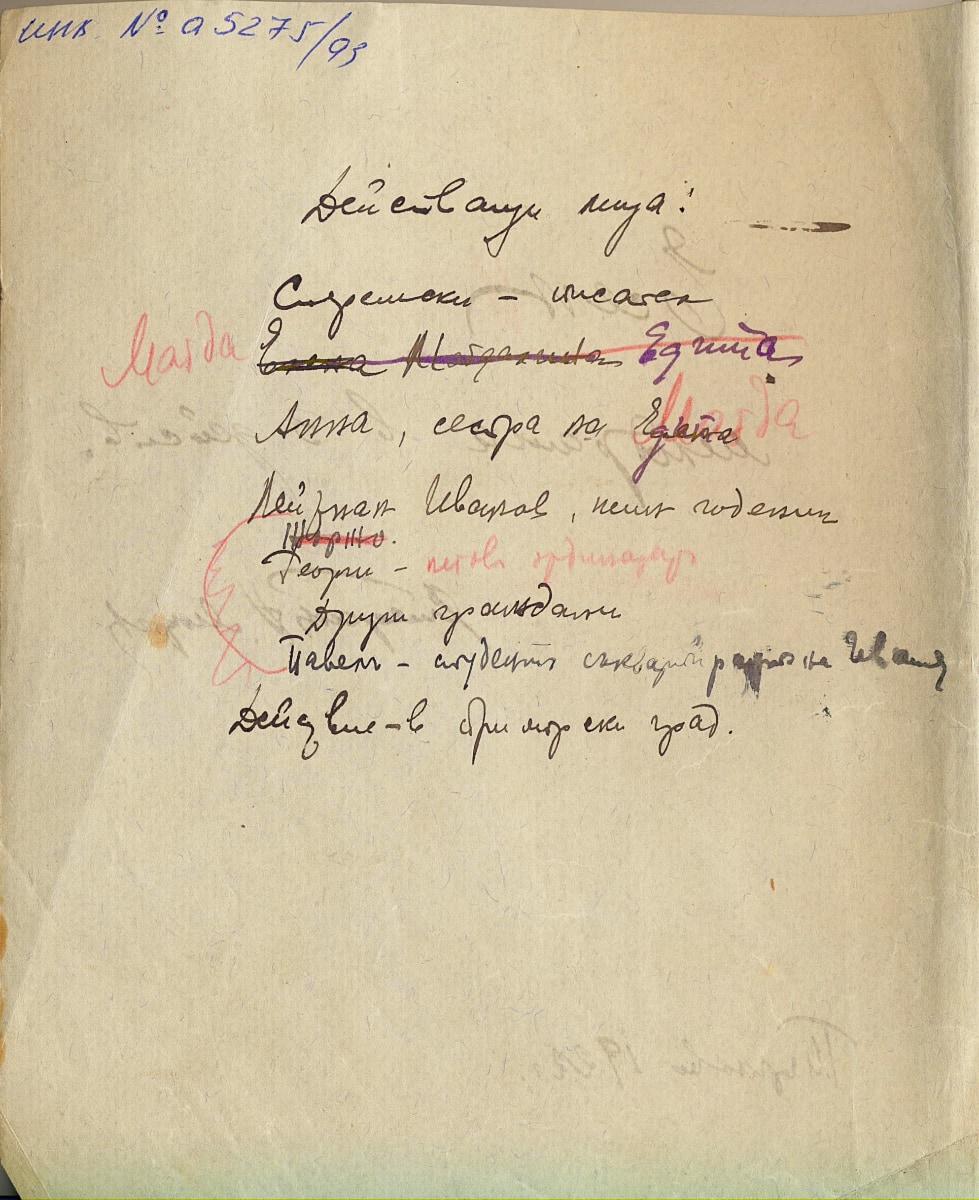 инв. № а 5275/93
Действащи лица:
Стремски – писател
Магда Елена Едита
Анна, сестра на Едита Магда
Лейтнант Иванов, неин годеник
Жоржо.
Георги – негов ординарец
Други граждани
Павел – студент на Иванов
Действие – в приморски град.